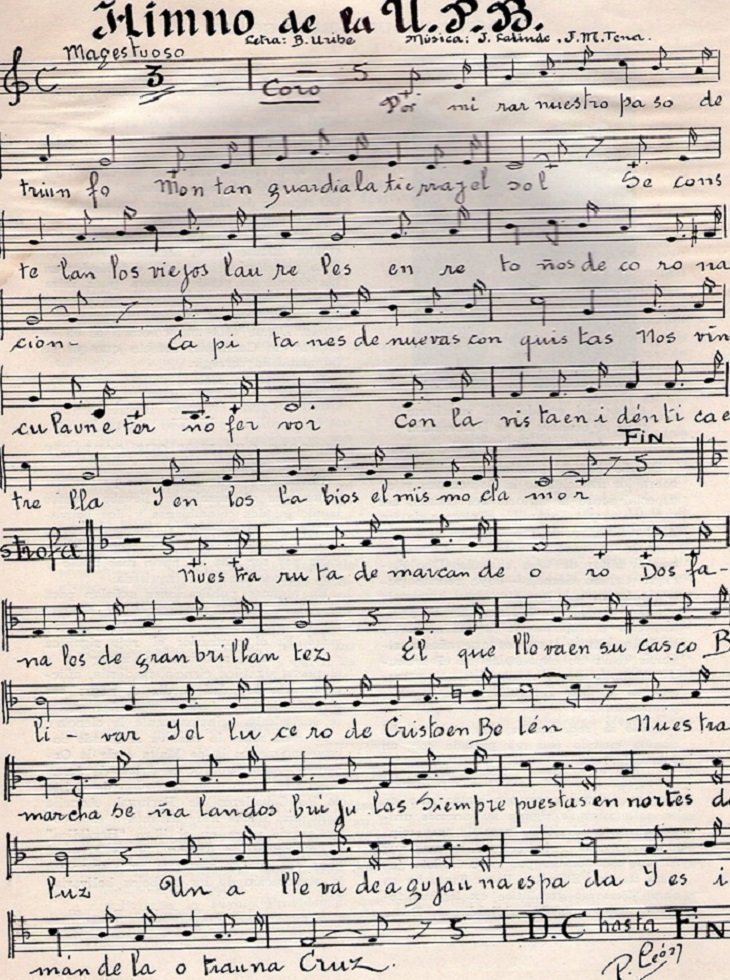 Himno de la U.P.B.
Magestuoso Letra: B. Uribe Música: J. Galindo, J.M. Tena.
3 Coro
Por mi rar nuestro pa so de
triun fo Mon tan guardia la tie rra y el sol Se cons
te lan los viejos lau re les en re to ños de co ro na
cion- Ca pi ta nes de nuevas con quis tas Nos vin
cu la un e ter no fer vor Con la vis ta en i dén ti ca e
FIN
tre lla Y en los la bios el mis mo cla mor
strofa
Nues tra ru ta de marcan de o ro Dos fa-
na les de gran bri llan tez El que lle va en su cas co B
li - var Y el lu ce ro de Cristo en Be lén Nuestra
marcha se ña lan dos brú ju las Siempre puestas en nortes d
luz Un a lle va de a gu ja u na es pa da Y es i
D.C hasta FIN
mán de la o tra una Cruz.
P. León